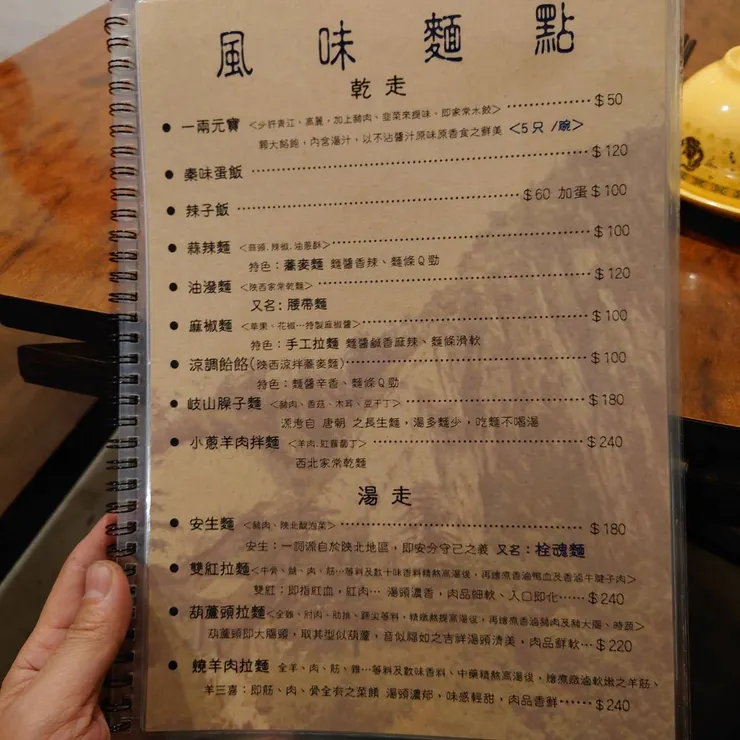 風味麵點
乾走
● 一兩元寶 <少許青江、高麗，加上豬肉、韭菜來提味，即家常水餃> ⋯⋯ $50
顆大餡飽，內含湯汁，以不沾醬汁原味原香食之鮮美 <5只/碗>
● 秦味蛋飯 ⋯⋯ $120
● 辣子飯 ⋯⋯ $60 加蛋$100
● 蒜辣麵 <蒜頭、辣椒、油蔥酥> ⋯⋯ $100
特色：蕎麥麵 麵醬香辣、麵條Q勁
● 油潑麵 <陝西家常乾麵> ⋯⋯ $120
又名：腰帶麵
● 麻椒麵 <草果、花椒⋯特製麻椒醬> ⋯⋯ $100
特色：手工拉麵 麵醬鹹香麻辣、麵條滑軟
● 涼調餄餎(陝西涼拌蕎麥麵) ⋯⋯ $100
特色：麵醬辛香、麵條Q勁
● 岐山臊子麵 <豬肉、香菇、木耳、豆干丁> ⋯⋯ $180
源考自 唐朝 之長生麵，湯多麵少，吃麵不喝湯
● 小蔥羊肉拌麵 <羊肉、紅蘿蔔丁> ⋯⋯ $240
西北家常乾麵
湯走
● 安生麵 <豬肉、陝北酸泡菜> ⋯⋯ $180
安生：一詞源自於陝北地區，即安分守己之義 又名：栓魂麵
● 雙紅拉麵 <牛骨、雜、肉、筋⋯等料及數十味香料精熬高湯後，再燴煮香滷鴨血及香滷牛腱子肉>
雙紅：即指紅血，紅肉⋯ 湯頭濃香，肉品細軟、入口即化⋯⋯ $240
● 葫蘆頭拉麵 <全雞、肘肉、肋排、雞尖等料，精燉熬提高湯後，再燴煮香滷豬肉及豬大腸、時蔬>
葫蘆頭即大腸頭，取其型似葫蘆，音似福如之吉祥湯頭清美，肉品鮮軟⋯ $220
● 燒羊肉拉麵 全羊、肉、筋、雜⋯等料及數味香料、中藥精熬高湯後，燴煮燉滷軟嫩之羊筋、
羊三喜：即筋、肉、骨全有之菜餚 湯頭濃郁，味感輕甜，肉品香鮮⋯⋯ $240